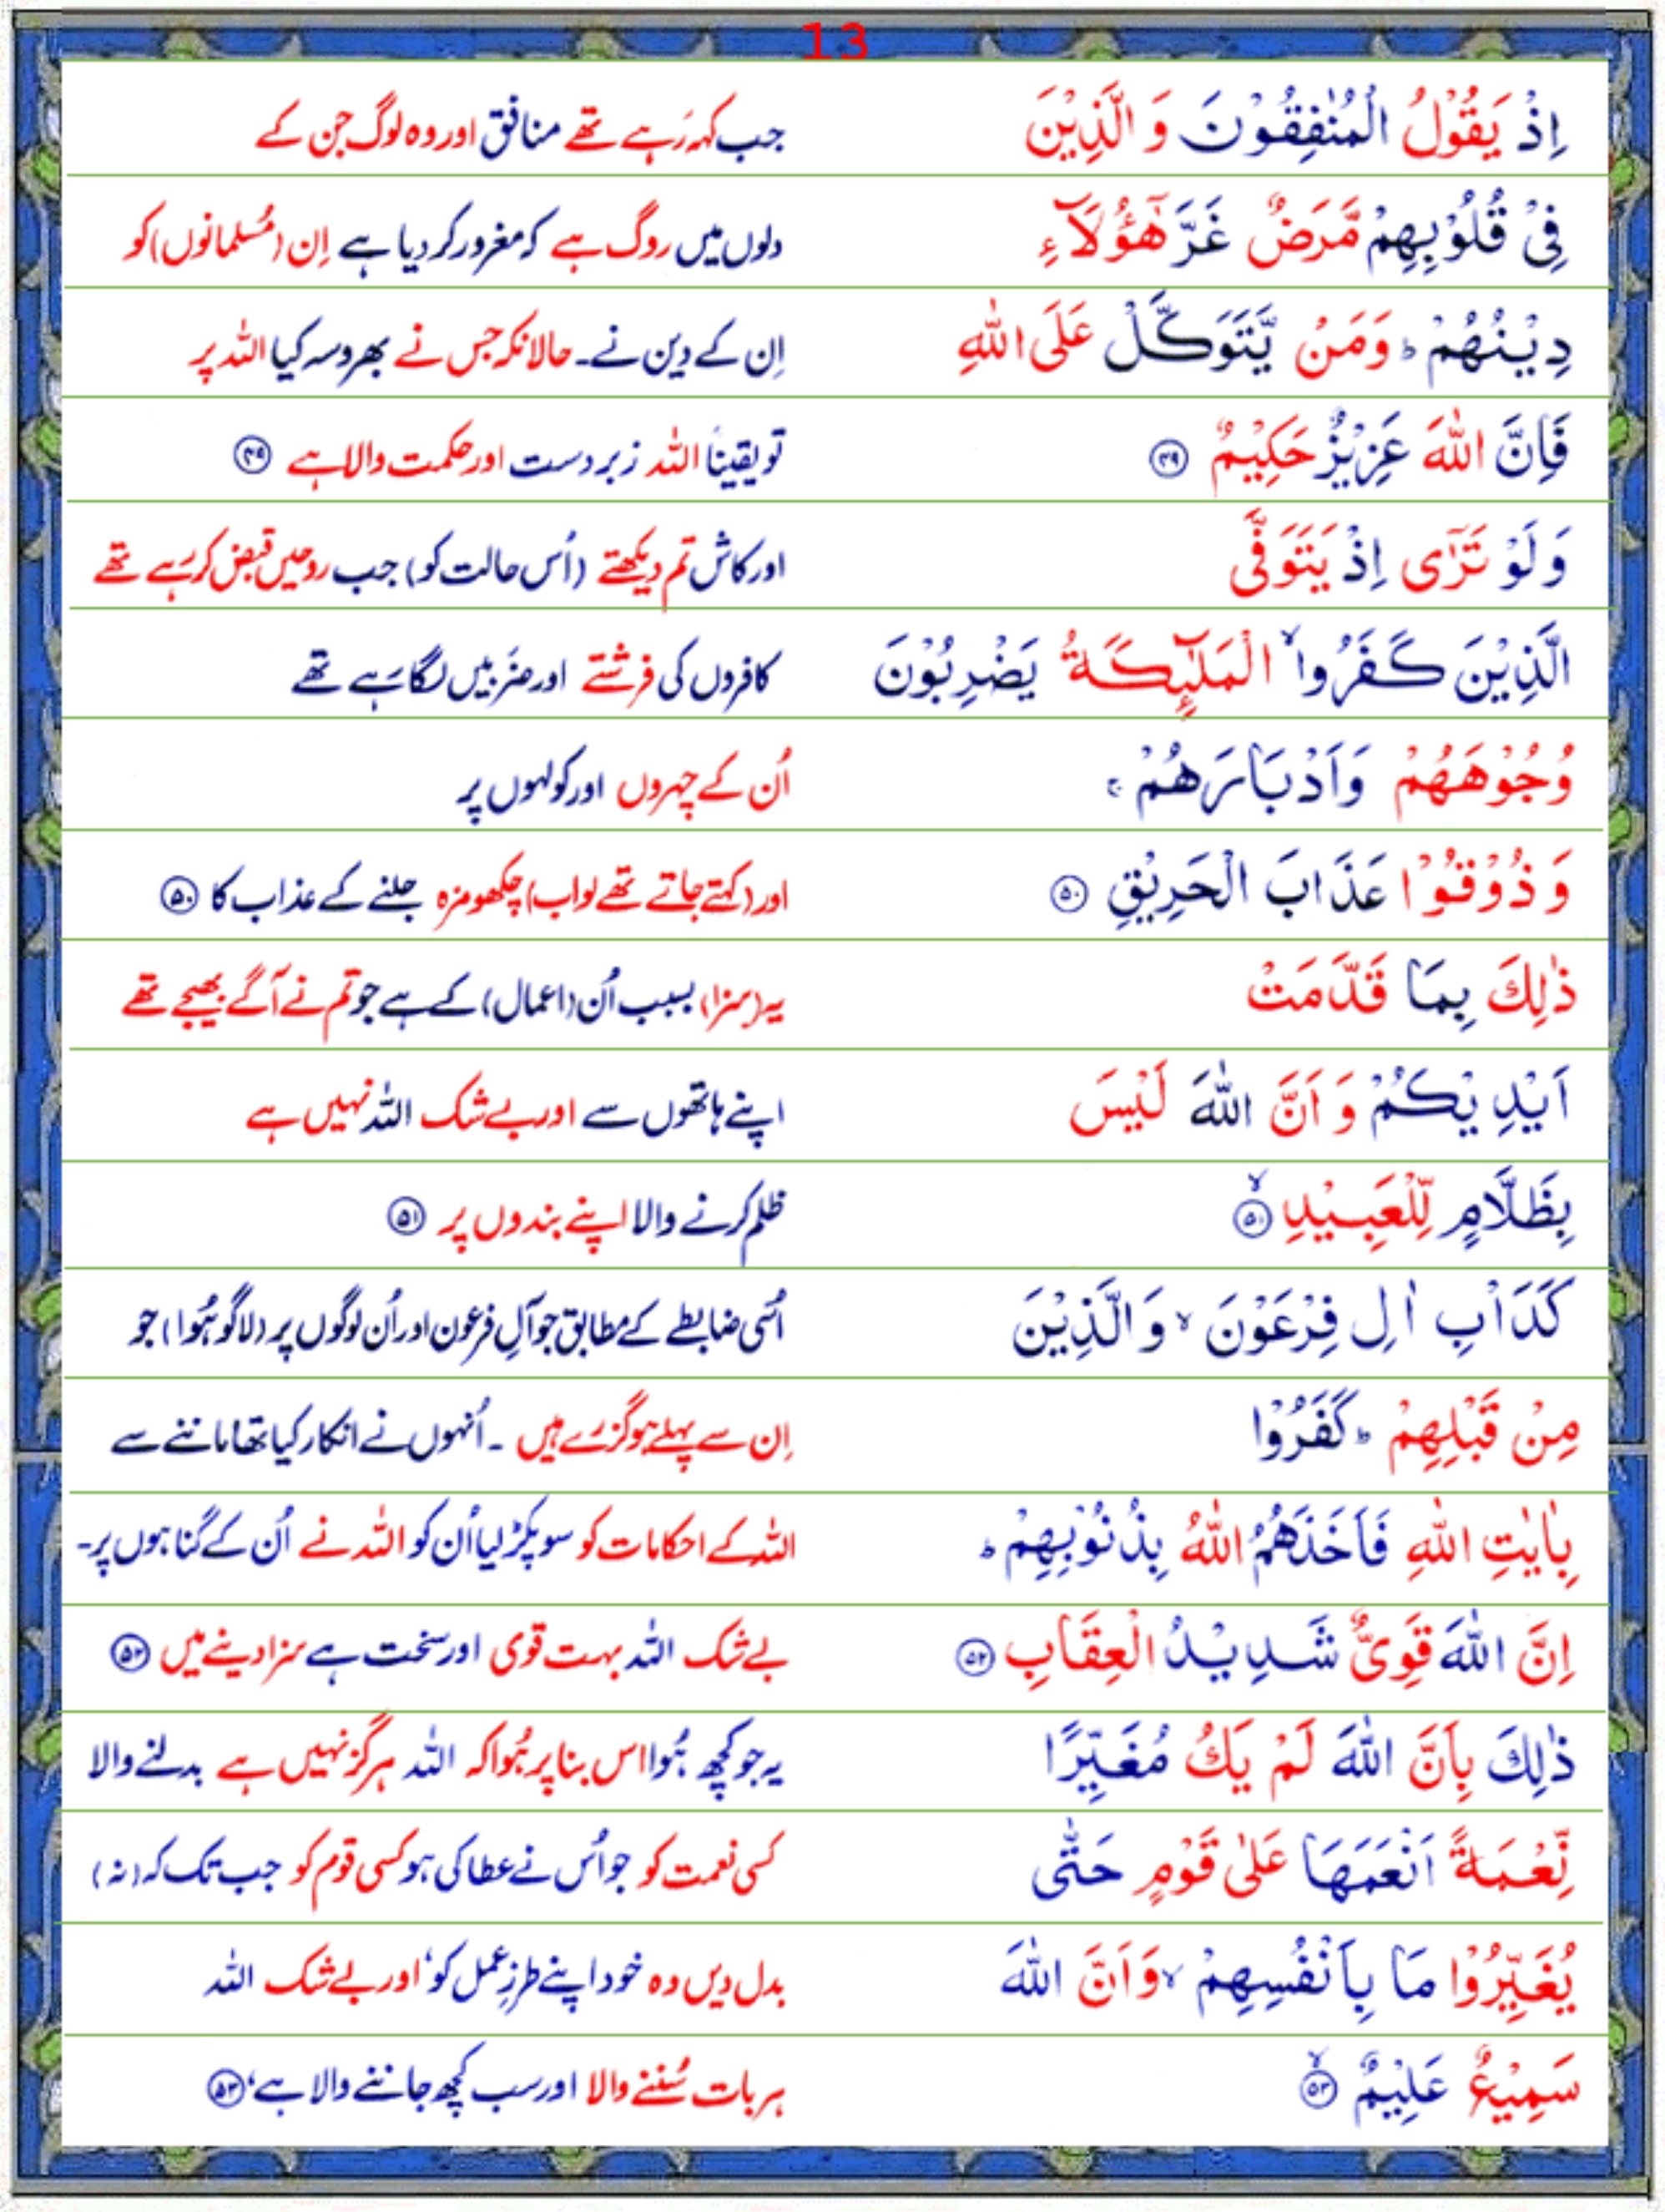 13
اِذْ يَقُوْلُ الْمُنٰفِقُوْنَ وَ الَّذِيْنَ جب کہہ رہے تھے منافق اور وہ لوگ جن کے
فِىْ قُلُوْبِهِمْ مَّرَضٌ غَرَّ هٰٓؤُلَآءِ دلوں میں روگ ہے کہ مغرور کر دیا ہے اِن (مُسلمانوں) کو
دِيْنُهُمْ ؕ وَمَنْ يَّتَوَكَّلْ عَلَى اللّٰهِ اِن کے دِین نے۔ حالانکہ جس نے بھروسہ کیا اللہ پر
فَاِنَّ اللّٰهَ عَزِيْزٌ حَكِيْمٌ ۴۹ تو یقیناً اللہ زبردست اور حکمت والا ہے ۴۹
وَ لَوْ تَرٰٓى اِذْ يَتَوَفَّى اور کاش تم دیکھتے (اُس حالت کو) جب روحیں قبض کر رہے تھے
الَّذِيْنَ كَفَرُوا ۙ الْمَلٰٓئِكَةُ يَضْرِبُوْنَ کافروں کی فرشتے اور ضربیں لگا رہے تھے
وُجُوْهَهُمْ وَاَدْبَارَهُمْ ۚ اُن کے چہروں اور کولہوں پر
وَ ذُوْقُوْا عَذَابَ الْحَرِيْقِ ۵۰ اور (کہتے جاتے تھے لو اب) چکھو مزہ جلنے کے عذاب کا ۵۰
ذٰلِكَ بِمَا قَدَّمَتْ یہ (سزا) بسبب اُن (اعمال) کے ہے جو تم نے آگے بھیجے تھے
اَيْدِيْكُمْ وَ اَنَّ اللّٰهَ لَيْسَ اپنے ہاتھوں سے اور بے شک اللہ نہیں ہے
بِظَلَّامٍ لِّلْعَبِيْدِ ۙ ۵۱ ظلم کرنے والا اپنے بندوں پر ۵۱
كَدَاْبِ اٰلِ فِرْعَوْنَ ۙ وَ الَّذِيْنَ اُسی ضابطے کے مطابق جو آلِ فرعون اور اُن لوگوں پر (لاگو ہُوا) جو
مِنْ قَبْلِهِمْ ؕ كَفَرُوْا اِن سے پہلے ہو گزرے ہیں ۔ اُنہوں نے انکار کیا تھا ماننے سے
بِاٰيٰتِ اللّٰهِ فَاَخَذَهُمُ اللّٰهُ بِذُنُوْبِهِمْ ؕ اللہ کے احکامات کو سو پکڑ لیا اُن کو اللہ نے اُن کے گناہوں پر۔
اِنَّ اللّٰهَ قَوِىٌّ شَدِيْدُ الْعِقَابِ ۵۲ بے شک اللہ بہت قوی اور سخت ہے سزا دینے میں ۵۲
ذٰلِكَ بِاَنَّ اللّٰهَ لَمْ يَكُ مُغَيِّرًا یہ جو کچھ ہُوا اس بنا پر ہُوا کہ اللہ ہرگز نہیں ہے بدلنے والا
نِّعْمَةً اَنْعَمَهَا عَلٰى قَوْمٍ حَتّٰى کسی نعمت کو جو اُس نے عطا کی ہو کسی قوم کو جب تک کہ (نہ)
يُغَيِّرُوْا مَا بِاَنْفُسِهِمْ ۙ وَ اَنَّ اللّٰهَ بدل دیں وہ خود اپنے طرزِ عمل کو، اور بے شک اللہ
سَمِيْعٌ عَلِيْمٌ ۙ ۵۳ ہر بات سُننے والا اور سب کچھ جاننے والا ہے، ۵۳